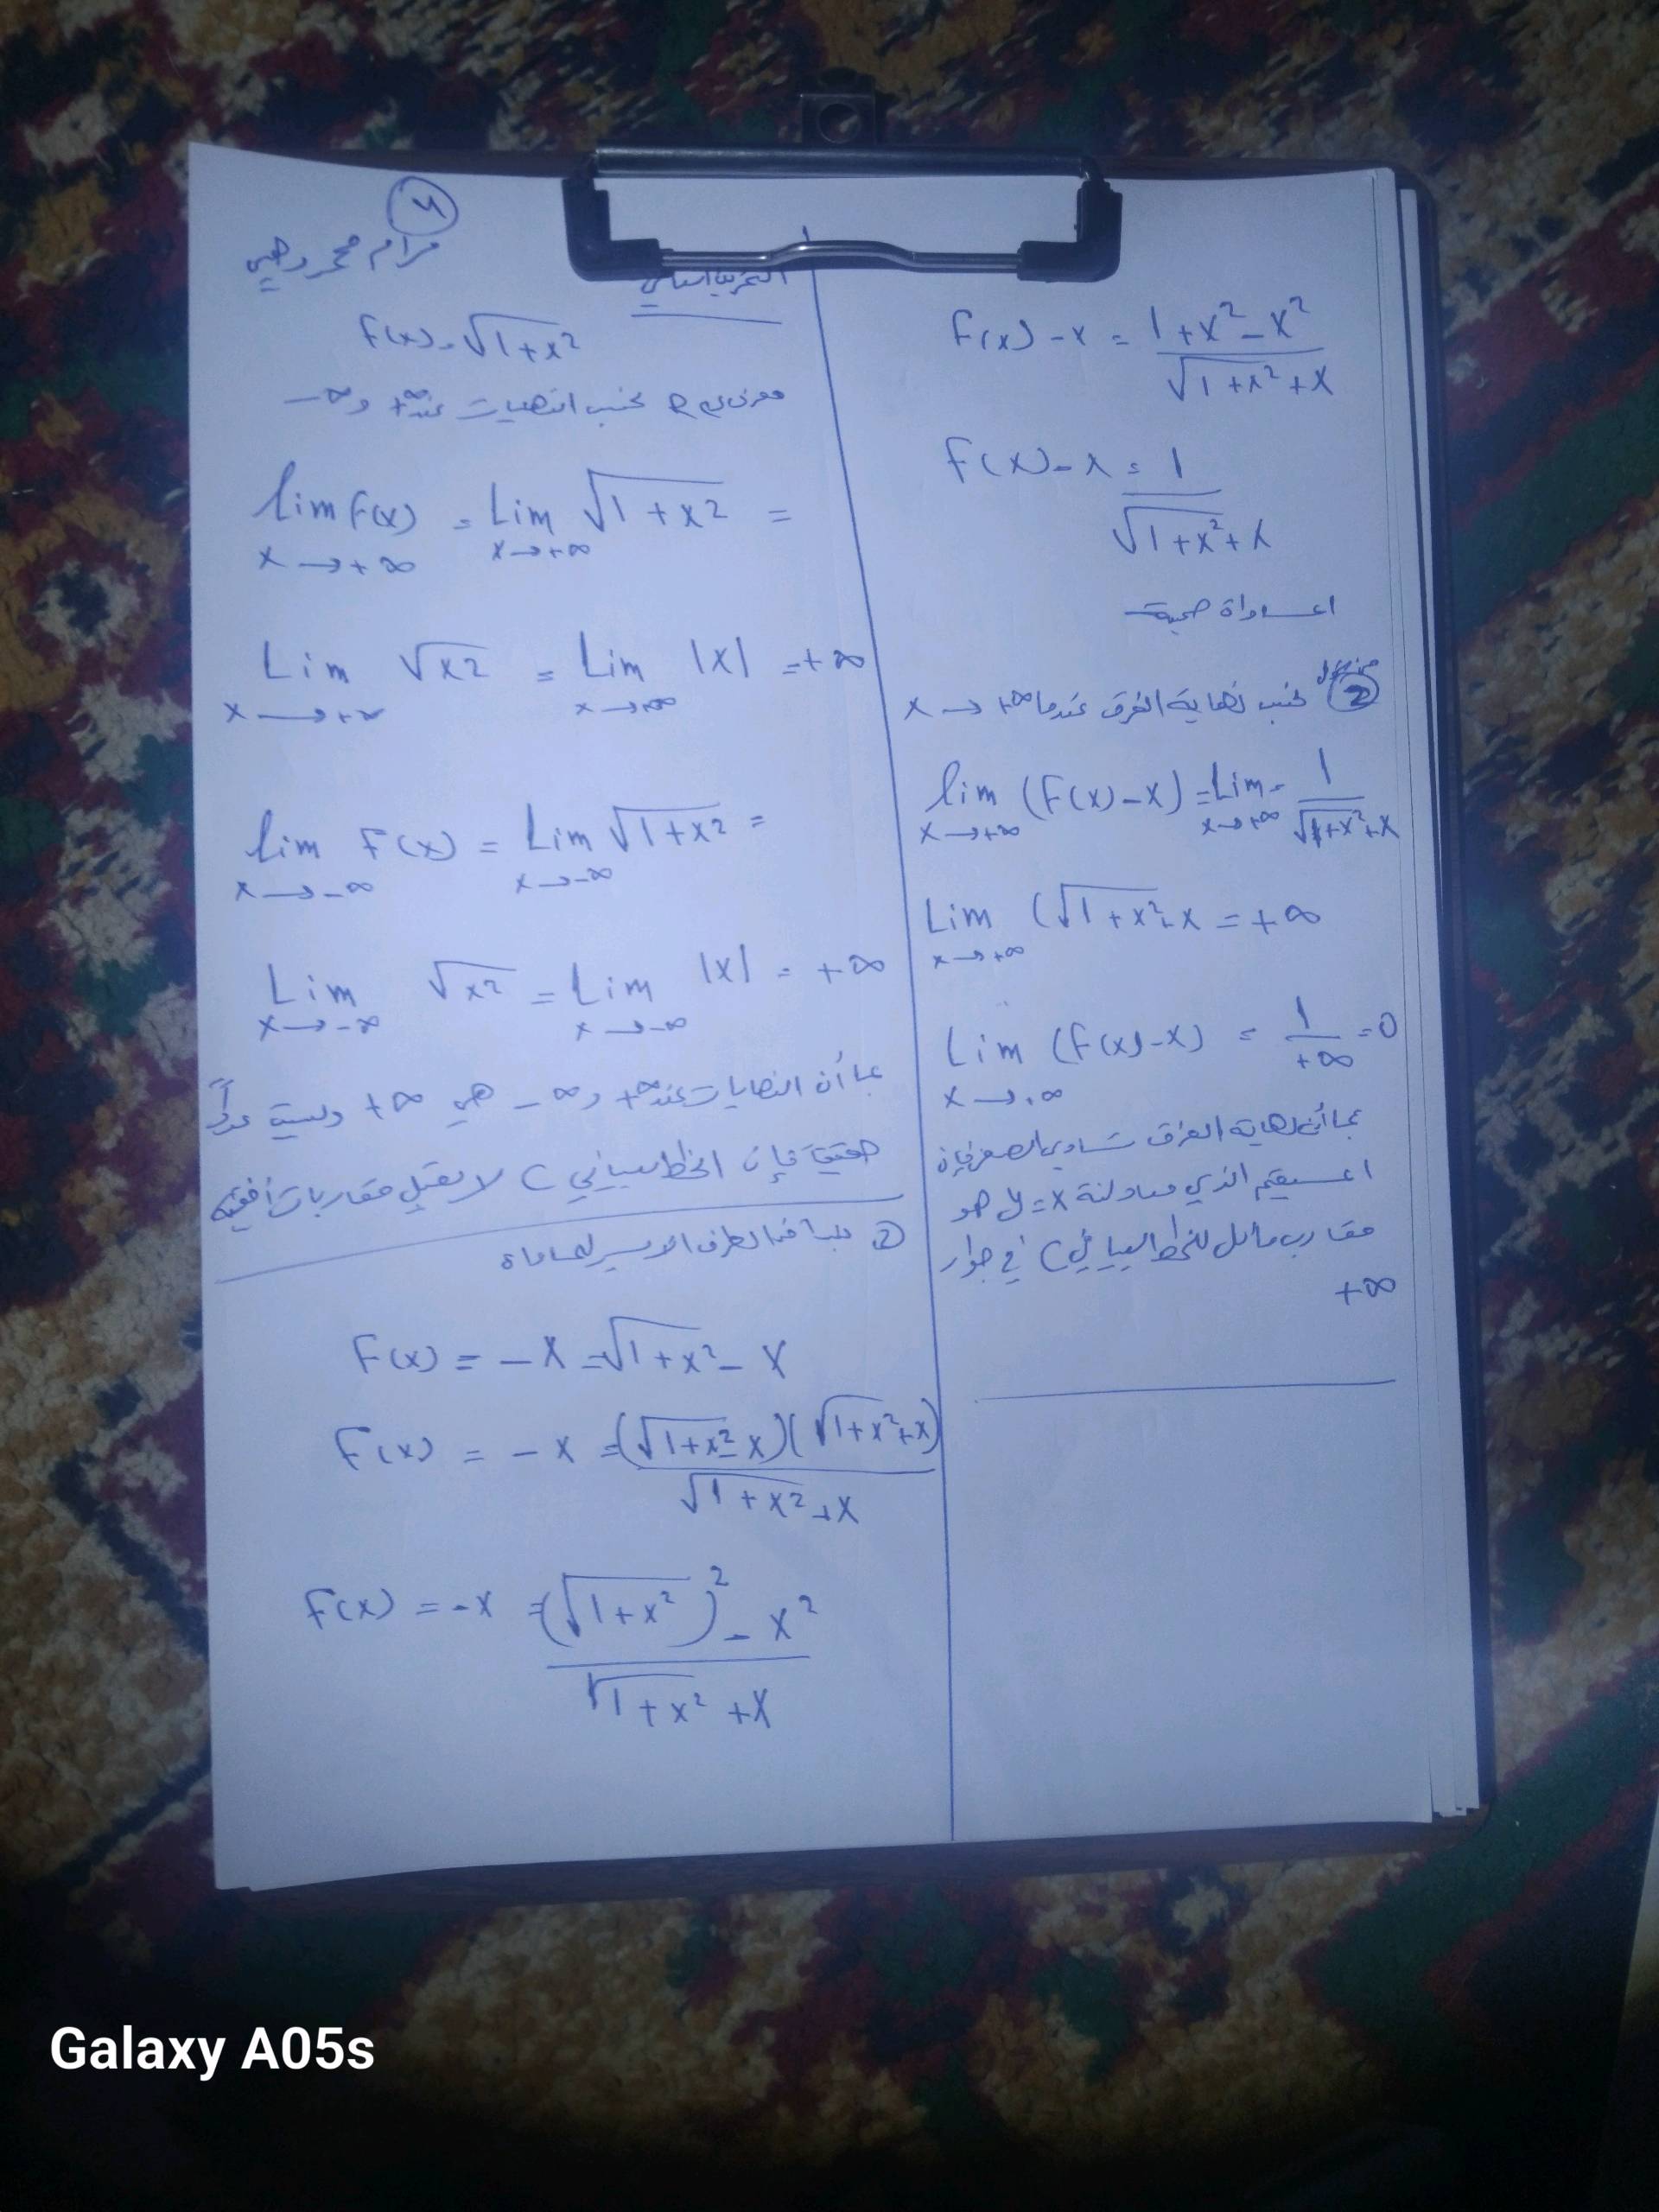 4
مرام محمد وهبي
التمرين السادس
F(x) = √1+x²
معرف على R نحسب النهايات عند +∞ و -∞
lim F(x) = Lim √1+x² =
x→+∞ x→+∞
Lim √x2 = Lim |x| = +∞
x→+∞ x→+∞
lim F(x) = Lim √1+x2 =
x→-∞ x→-∞
Lim √x2 = Lim |x| = +∞
x→-∞ x→-∞
بما أن النهايات عند +∞ و -∞ هي +∞ وليست عدداً
حقيقياً فإن الخط البياني C لا يقبل مقاربات أفقية
2 الطرف الايسر للمساواة
F(x) = -x = √1+x² - x
F(x) = -x = (√1+x² - x)(√1+x²+x)
√1+x²+x
F(x) = -x = (√1+x²)² - x²
√1+x² +x
F(x) - x = 1+x²-x²
√1+x²+x
F(x) - x = 1
√1+x²+x
المساواة صحيحة
2 نحسب نهاية الفرق عندما x → +∞
lim (F(x)-x) = Lim = 1
x→+∞ x→+∞ √1+x²+x
Lim (√1+x²+x = +∞
x→+∞
Lim (F(x)-x) = 1 = 0
x→+∞ +∞
بما أن نهاية الفرق تساوي الصفر فإن
المستقيم الذي معادلته y=x هو
مقارب مائل للخط البياني C في جوار
+∞
Galaxy A05s